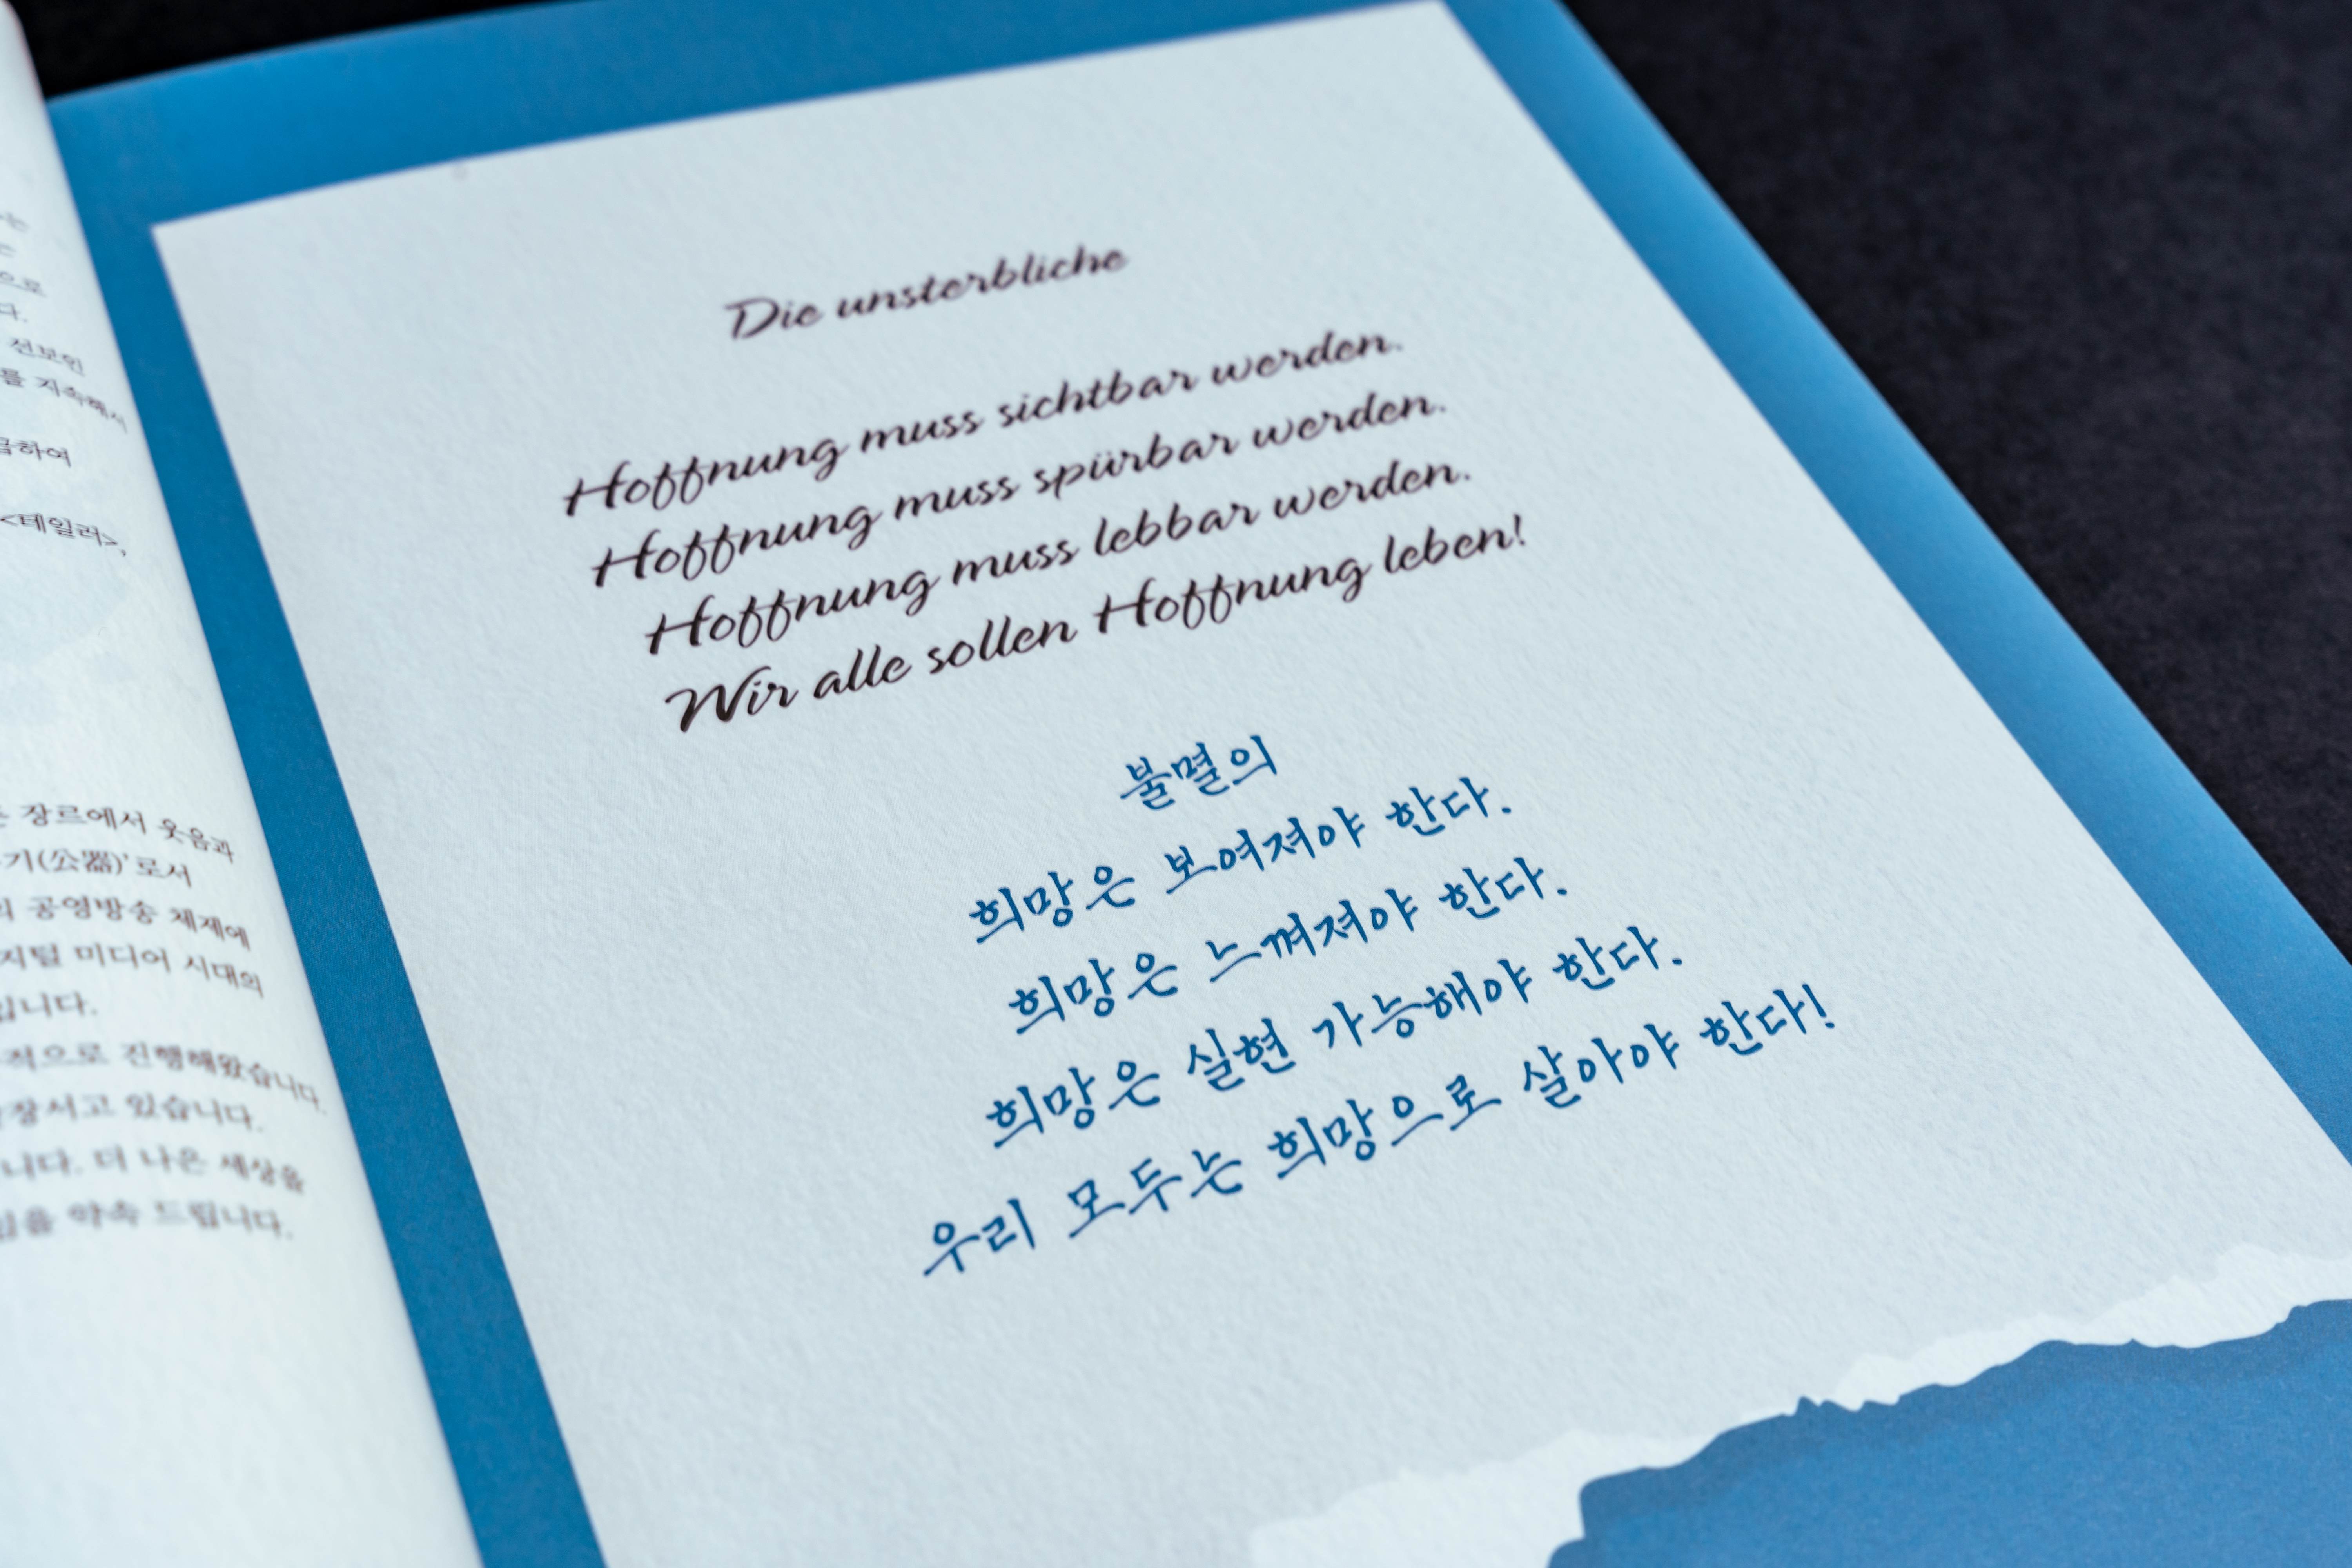 는
은
으로
다.
선보인
를 지속해서
급하여
<테일러>,
장르에서 웃음과
기(公器)'로서
공영방송 체제에
지털 미디어 시대의
입니다.
적으로 진행해왔습니다.
장서고 있습니다.
니다. 더 나은 세상을
임을 약속 드립니다.
Die unsterbliche
Hoffnung muss sichtbar werden.
Hoffnung muss spürbar werden.
Hoffnung muss lebbar werden.
Wir alle sollen Hoffnung leben!
불멸의
희망은 보여져야 한다.
희망은 느껴져야 한다.
희망은 실현 가능해야 한다.
우리 모두는 희망으로 살아야 한다!